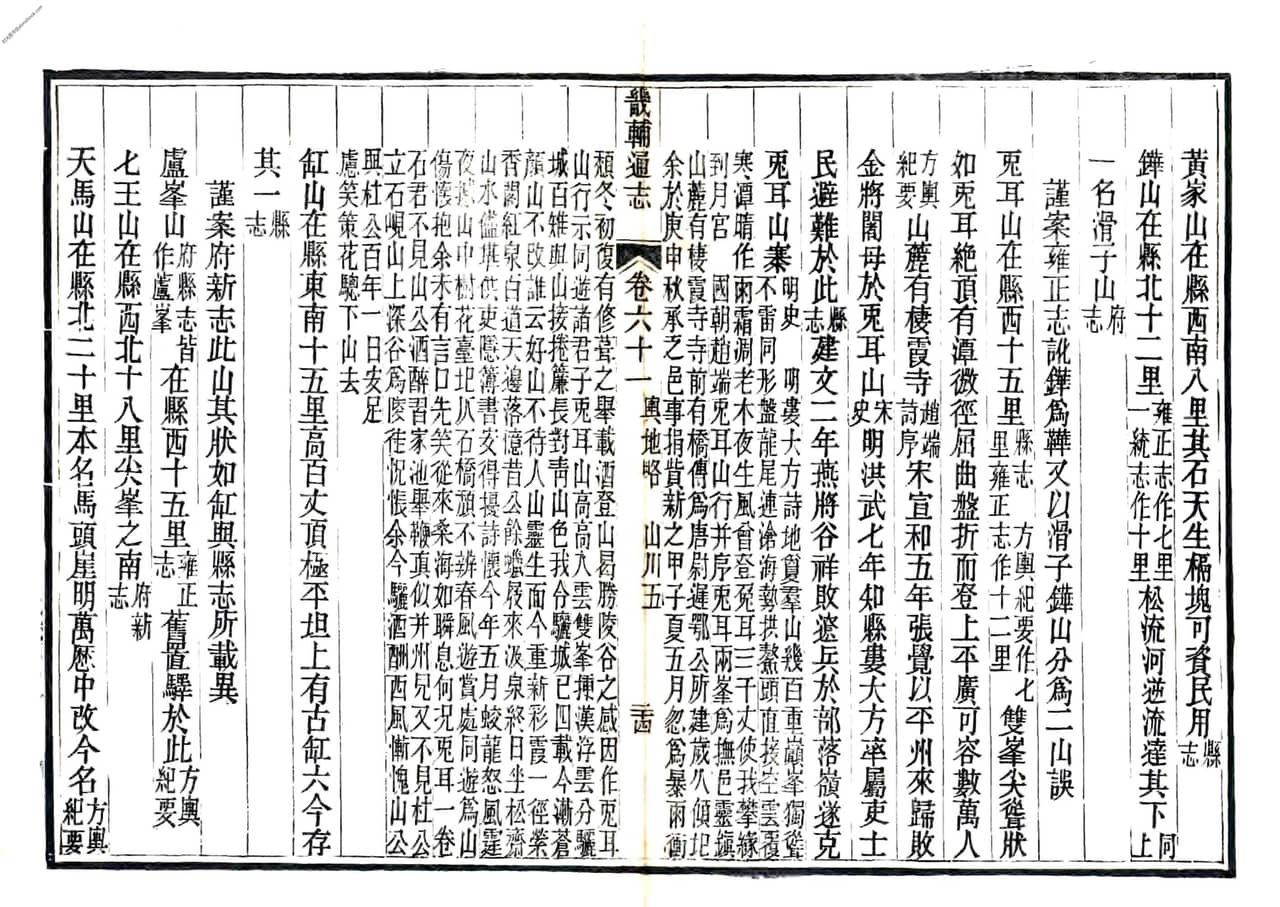 黃家山在縣西南八里其石天生稨塊可資民用縣志
鏵山在縣北十二里雍正志作七里一統志作十里松流河逆流達其下同上
一名滑子山府志
謹案雍正志訛鏵為鞾又以滑子鏵山分為二山誤
兎耳山在縣西十五里縣志方輿紀要作七里雍正志作十二里雙峯尖聳狀
如兎耳絶頂有潭微徑屈曲盤折而登上平廣可容數萬人
方輿紀要山麓有棲霞寺趙端詩序宋宣和五年張覺以平州來歸敗
金將闍母於兎耳山宋史明洪武七年知縣婁大方率屬吏士
民避難於此縣志建文二年燕將谷祥敗遼兵於部落嶺遂克
兎耳山寨明史 明婁大方詩地簣羣山幾百重巔峯獨聳
不雷同形盤龍尾連滄海勢拱鰲頭直接空雲覆
寒潭晴作雨霜凋老木夜生風曾登兎耳三千丈使我攀緣
到月宮 國朝趙端兎耳山行并序兎耳兩峯為撫邑靈鎭
山麓有棲霞寺寺前有橋傳為唐尉遲鄂公所建歲久傾圮
余於庚申秋承乏邑事捐貲新之甲子夏五月忽為暴雨衝
畿輔通志 卷六十一 輿地略 山川五 三四
頹冬初復有修葺之舉載酒登山曷勝陵谷之感因作兎耳
山行示同遊諸君子兎耳山高高入雲雙峯揷漢浮雲分驪
城百雉與山接捲簾長對靑山色我令驪城已四載今漸蒼
顔山不改誰云好山不待人山靈生面今重新彩霞一徑縈
香閣紅泉白道天邊落憶昔公餘蠟屐來汲泉終日坐松齋
山水儘堪供吏隱簿書安得擾詩懷今年五月蛟龍怒風霆
夜撼山中樹花臺圮爪石橋頹不辨春風遊賞處同遊為山
傷懷抱余未有言口先笑從來桑海如瞬息何況兎耳一卷
石君不見山公酒醉習家池舉鞭眞似并州兒又不見杜公
立石峴山上深谷為陵徒怳悵余今驪酒酬西風慚愧山公
與杜公百年一日安足
慮笑策花驄下山去
缸山在縣東南十五里高百丈頂極平坦上有古缸六今存
其一縣志
謹案府新志此山其狀如缸與縣志所載異
盧峯山府縣志皆作蘆峯在縣西十五里雍正志舊置驛於此方輿紀要
七王山在縣西北十八里尖峯之南府新志
天馬山在縣北二十里本名馬頭崖明萬歷中改今名方輿紀要